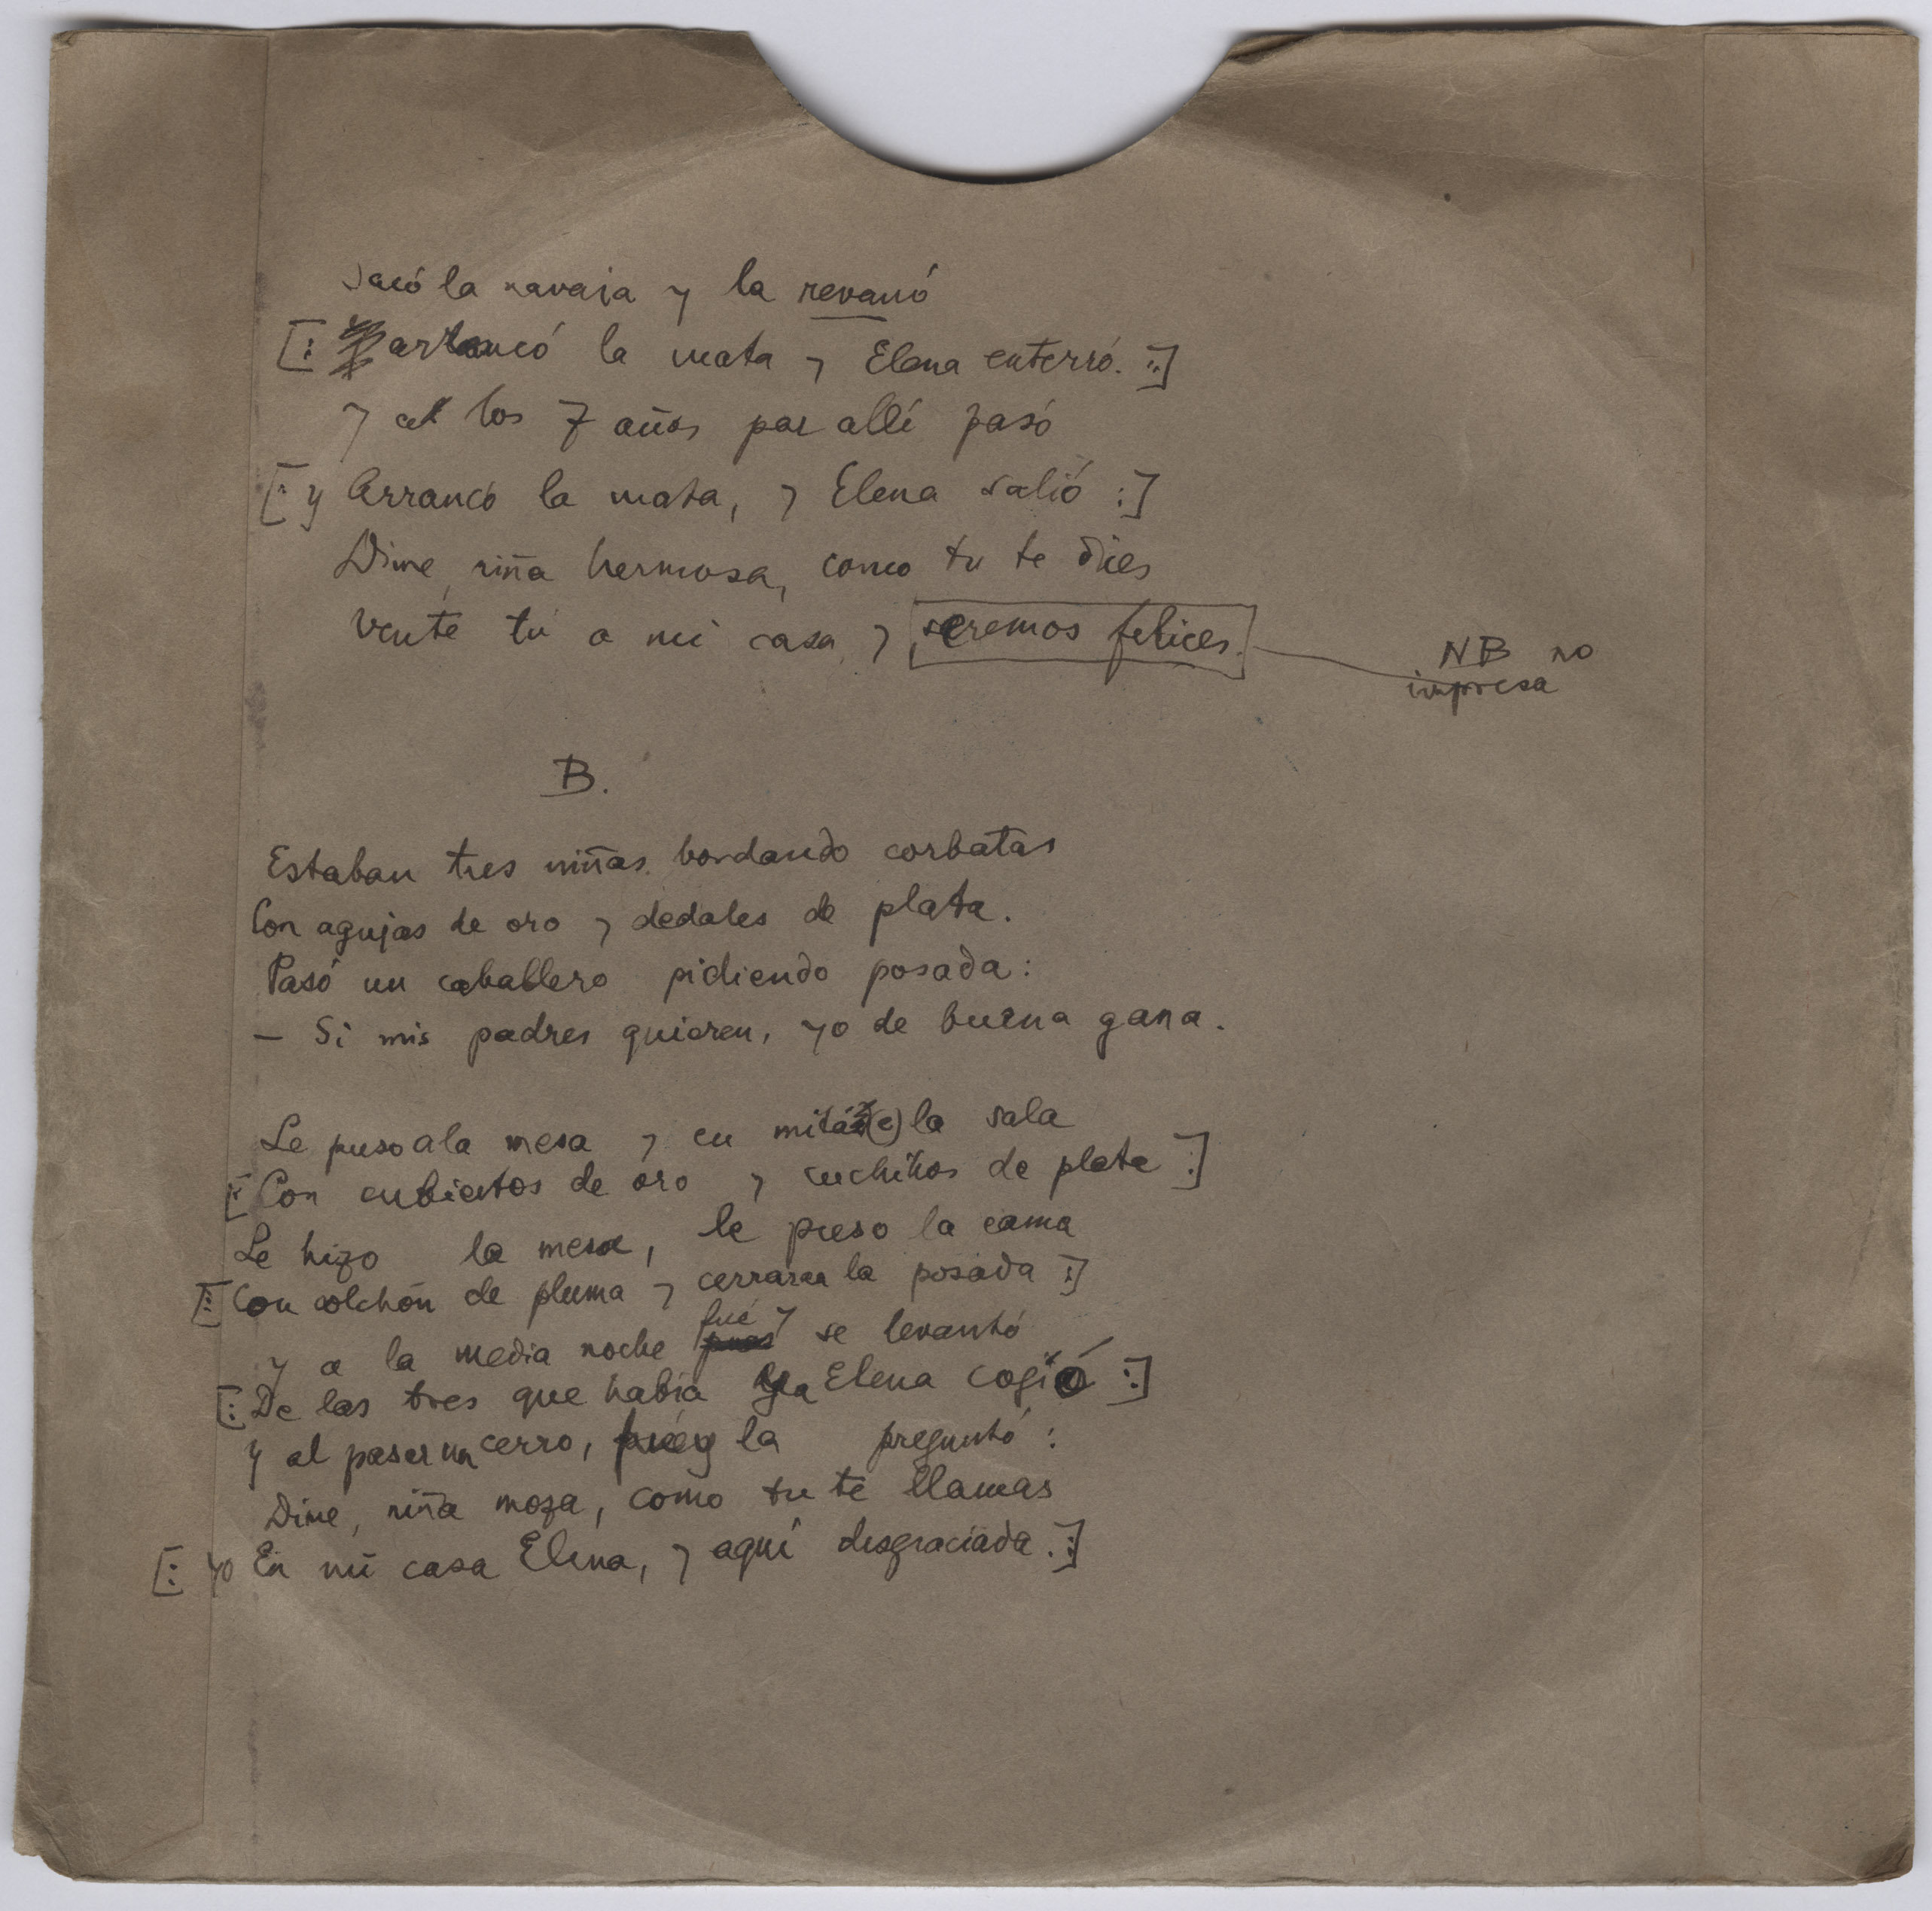 Sacó la navaja y la revanó
[: arrancó la mata y Elena enterró. :]
y a los 7 años por allí pasó
[: y Arrancó la mata, y Elena salió :]
Dime, niña hermosa, como tu te dices
Vente tú a mi casa, y seremos felices.
NB no
impresa
B.
Estaban tres niñas bordando corbatas
Con agujas de oro y dedales de plata.
Pasó un caballero pidiendo posada:
— Si mis padres quieren, yo de buena gana.
Le puso a la mesa y en mitá (e) la sala
[: Con cubiertos de oro y cuchillos de plata :]
Le hizo la mesa, le puso la cama
[: Con colchón de pluma y cerraron la posada :]
y a la media noche fué y se levantó
[: De las tres que había y a Elena cogió :]
y al pasar un cerro, fué y la preguntó:
Dime, niña moza, como tu te llamas
[: yo En mi casa Elena, y aquí desgraciada. :]